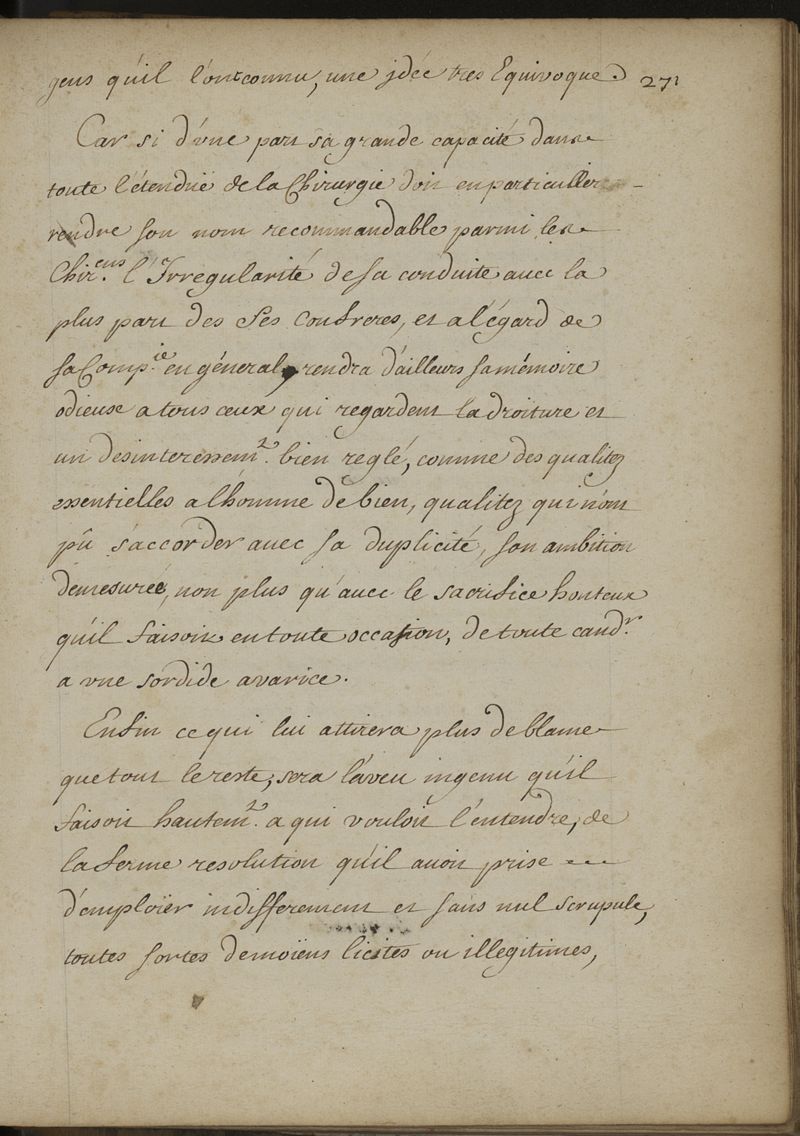 gens qu'il l'ont connu, une jdée tres Equivoque. 271
Car si d'vne part sa grande capacité dans
toute l'étenduë de la Chirurgie doit en particulier
rendre son nom recommandable parmi les
Chir.ens l'Irregularité de sa conduite auec la
plus part des Ses Confreres, et a l'égard de
sa Comp.ie en géneral, rendra d'ailleurs sa mémoire
odieuse a tous ceux qui regardent la droiture et
un desinteressem.t bien reglé, comme des qualitez
essentielles a lhomme de bien, qualitez qui n'ont
pû s'accorder auec sa duplicité, son ambition
demesurée, non plus qu'auec le sacrifice honteux
qu'il faisoit en toute occasion, de toute cand.r
a vne sordide avarice.
Enfin ce qui lui attirera plus de blame
que tout le reste, sera l'aveu ingenu qu'il
faisoit hautem.t a qui vouloit l'entendre, de
la ferme resolution qu'il auoit prise
d'emploïer indifferement et sans nul scrupule,
toutes sortes de moïens licites ou illegitimes,